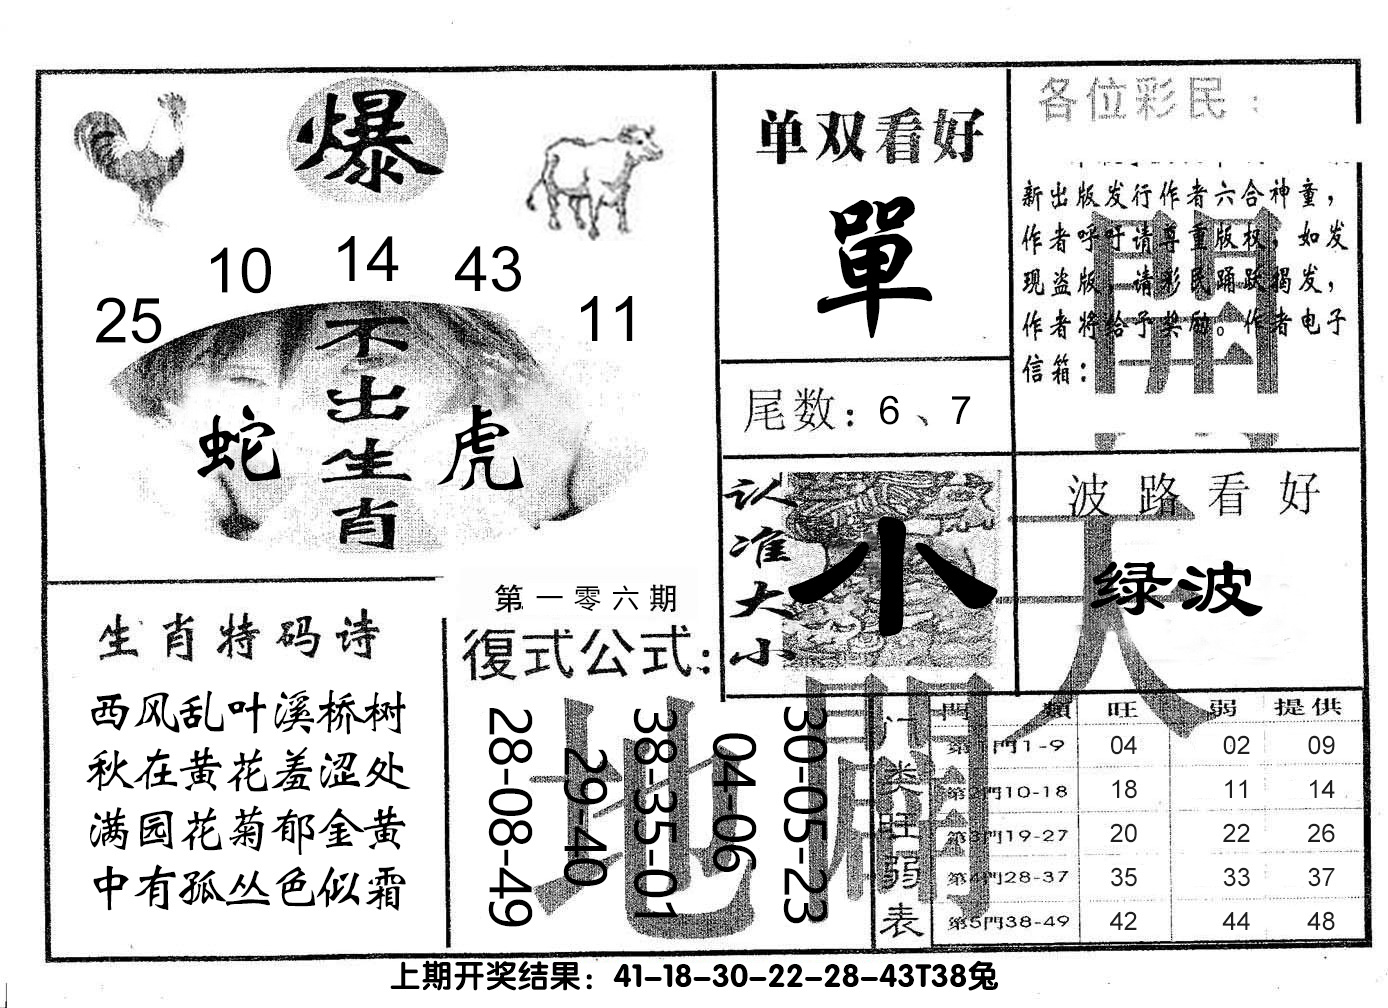 爆
10 14 43
25 11
不出生肖
蛇 虎
单双看好
單
尾数：6、7
认准大小
小
各位彩民：
新出版发行作者六合神童，
作者呼吁请尊重版权，如发
现盗版，请彩民踊跃揭发，
作者将给予奖励。作者电子
信箱：
開
波路看好
绿波
天
生肖特码诗
西风乱叶溪桥树
秋在黄花羞涩处
满园花菊郁金黄
中有孤丛色似霜
第一零六期
復式公式：
28-08-49
29-40
38-35-01
04-06
30-05-23
地
開
门类旺弱表
門類 旺 弱 提供
第1門1-9 04 02 09
第2門10-18 18 11 14
第3門19-27 20 22 26
第4門28-37 35 33 37
第5門38-49 42 44 48
上期开奖结果：41-18-30-22-28-43T38兔